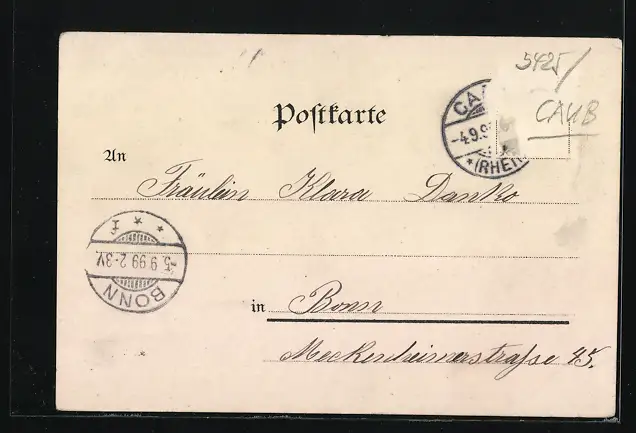 5425/
CAUB
Postkarte
CA
-4.9.9
*(RHEIN
An
Fräulein Klara Danko
5.9.99 2-3V.
BONN
in Bonn
Meckenheimerstraße 45.